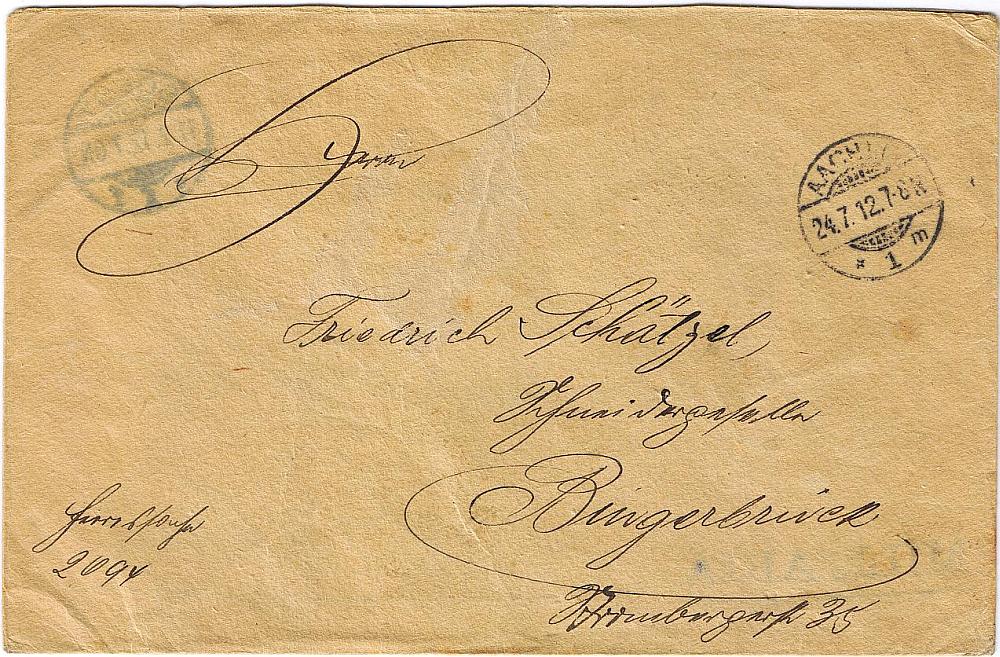 Herrn
AACHEN
24.7.12.7-8 N
* 1 m
Friedrich Schätzel,
Schneidergeselle
Bingerbrück
Heeressache
2094
35